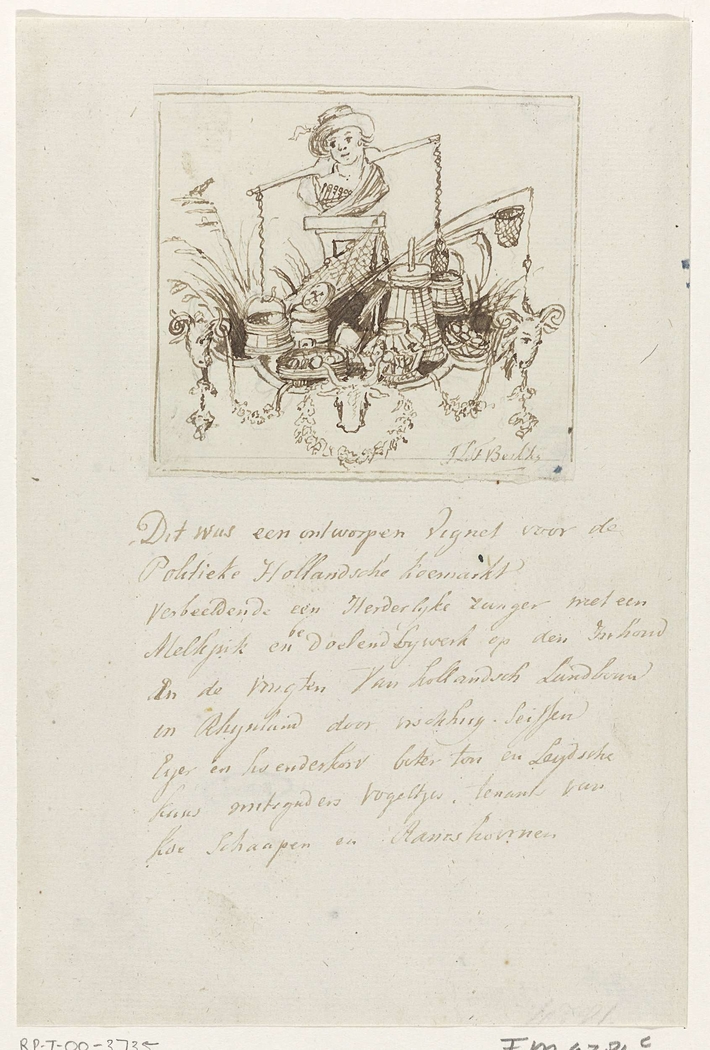 J L V Beelts
Dit was een ontworpen Vignet voor de
Politieke Hollandsche koemarkt
verbeeldende een Herderlyke zanger met een
Melkjuk en be Doelend bywerk op den Inhoud
in de vrugten Van hollandsch Landbouw
in Rhynland door
Eyer en hoenderkorf boter ton en Leydsche
kaas vogeltjes. tenants van
koe Schaapen en Ramshoornen
RP-T-00-3735